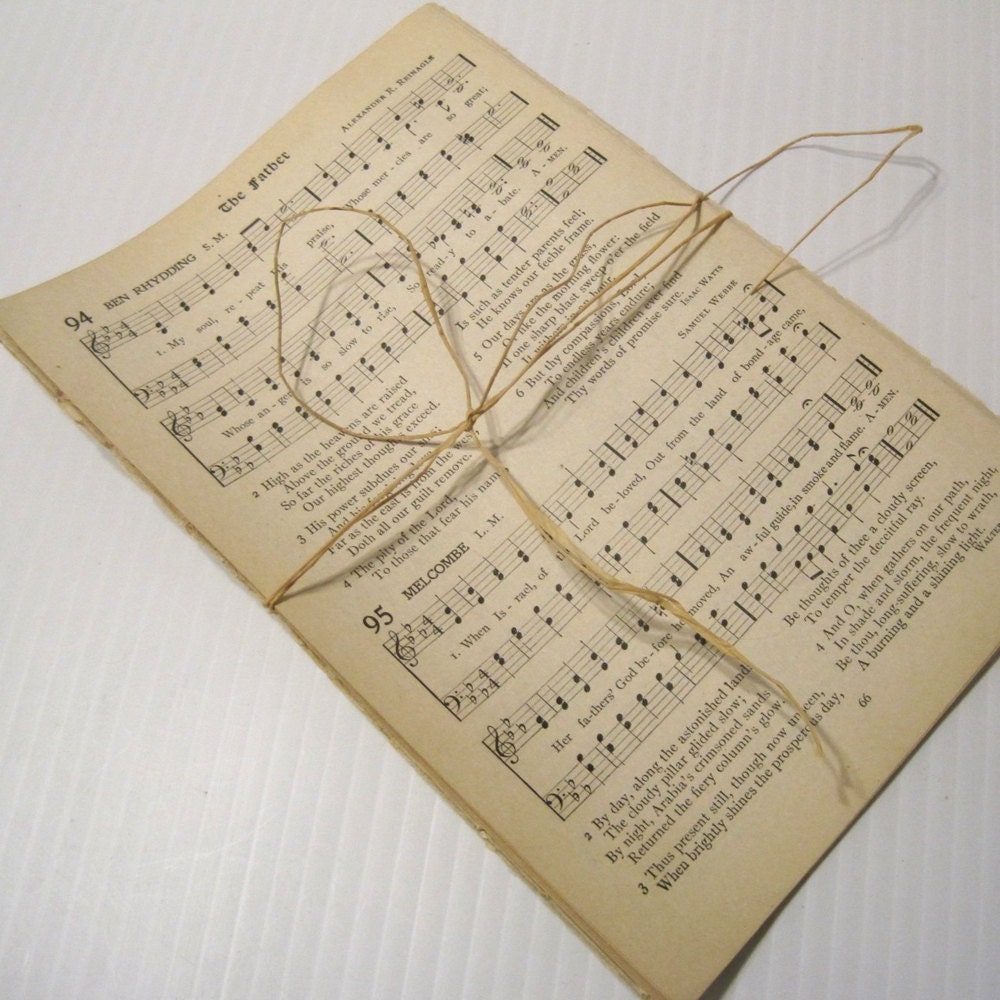 The Father
94 BEN RHYDDING S. M. ALEXANDER R. REINAGLE
1. My soul, re - peat his praise, Whose mer - cies are so great;
Whose an - ger is so slow to rise, So read - y to a - bate. A - MEN.
2 High as the heavens are raised
Above the ground we tread,
So far the riches of his grace
Our highest thoughts exceed.
3 His power subdues our
Far as the east is from the west
Doth all our guilt remove.
4 The pity of the Lord,
To those that fear his name
Is such as tender parents feel;
He knows our feeble frame.
5 Our days are as the grass,
Or like the morning flower:
If one sharp blast sweep o'er the field
It withers in an hour.
6 But thy compassions, Lord
To endless years endure;
And children's children ever find
Thy words of promise sure.
ISAAC WATTS
95 MELCOMBE L. M. SAMUEL WEBBE
1. When Is - rael, of the Lord be - loved, Out from the land of bond - age came,
Her fa - thers' God be - fore he moved, An aw - ful guide, in smoke and flame. A - MEN.
2 By day, along the astonished land
The cloudy pillar glided slow;
By night, Arabia's crimsoned sands
Returned the fiery column's glow.
3 Thus present still, though now unseen,
When brightly shines the prosperous day,
Be thoughts of thee a cloudy screen,
To temper the deceitful ray.
4 And O, when gathers on our path,
In shade and storm, the frequent night,
Be thou, long-suffering, slow to wrath,
A burning and a shining light.
66